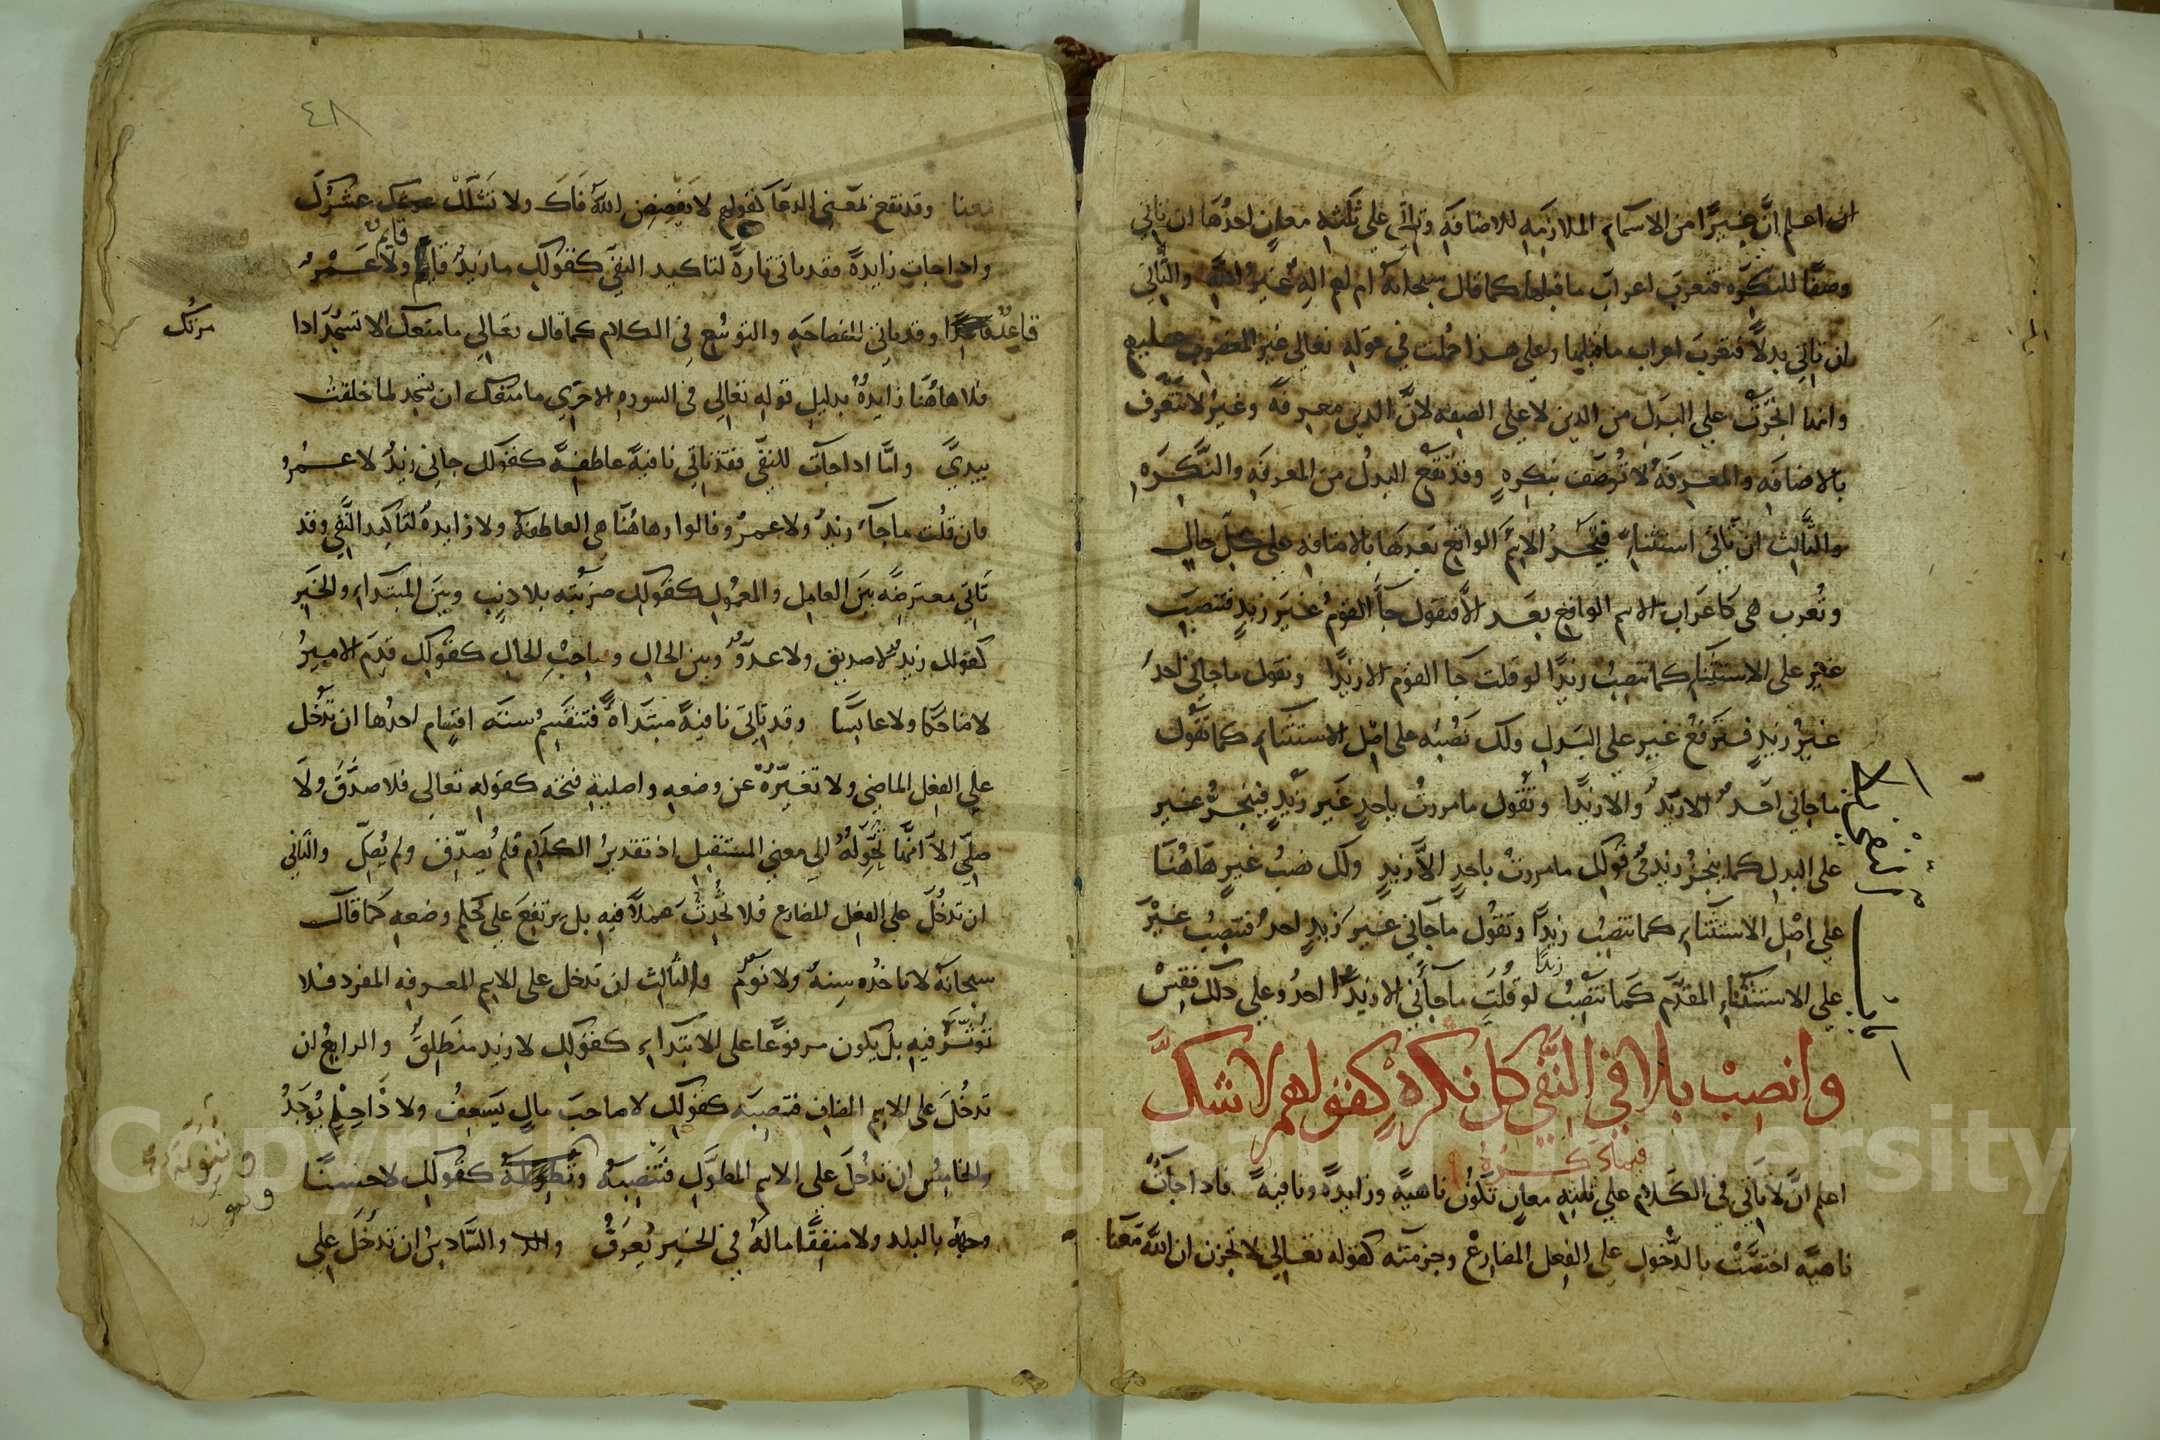 اعلم انّ غيرًا من الاسماء الملازمه للاضافة وتاتي على ثلثه معانٍ احدُها ان تاتي
وصفًا للنكرة فتعرب اعراب ما قبلها كما قال سبحانه ام لهم الهٌ غيرُ الله والثاني
ان تاتي بدلاً فتعرب اعراب ما قبلها وعلى هذا حملت في قوله تعالى غير المغضوب عليهم
وانما انجرّت على البدل من الذين لا على الصفه لانّ الذين معرفة وغيرُ لا تتعرّف
بالاضافه والمعرفة لا تُوصَف بنكرهٍ وقد تقع البدلُ من المعرفه والنكره
والثالث ان تاتي استثناءً فيُجَرُّ الاسمُ الواقع بعدها بالاضافه على كل حالٍ
وتُعرب هي كاعراب الاسم الواقع بعد الاّ فتقول جآ القومُ غيرَ زيدٍ فتنصب
غير على الاستثناء كما تنصبُ زيدًا لو قلت جا القوم الا زيدًا وتقول ما جاني احدٌ
غيرُ زيدٍ فترفعُ غير على البدل ولك نَصْبُه على اصْل الاستثناء كما تقول
ما جاني احدٌ الا زيدٌ والا زيدًا وتقُول ما مررتُ باحدٍ غيرِ زيدٍ فينجرُّ غير
على البدل كما ينجرُّ زيد في قولك ما مررتُ باحدٍ الاّ زيدٍ ولك نصبُ غيرٍ هاهُنا
على اصْل الاستثناء كما تنصبُ زيدًا وتقُول ما جآني غير زيدٍ احدٌ فتنصِبُ غيرَ
على الاستثناء المقدّم كما تنصبُ زيدًا لو قُلتَ ما جآني الا زيدًا احدٌ وعلى ذلك فقِسْ
وانصِبْ بلا في النَّفي كل نكره كقولهم لا شكَّ
فيما ذكره
اعلم انّ لا تاتي في الكلام على ثلثه معانٍ تكون ناهيةً وزايدةً ونافيةً فاذا جآتْ
ناهيةً اختصَّتْ بالدُّخول على الفعل المضارع وجزمته كقوله تعالى لا تحزن ان الله معنا
٤٨
معنا وقد تقع بمعنى الدعا كقولهم لا يَفضِض اللهُ فاكَ ولا تشلل عشرُكَ
واذا جات زايدةً فقد تاتي تارةً لتاكيد النفي كقولك ما زيدٌ قايمٌ ولا عمرٌو
قايم
قاعدٌ وقد تاتي للفصاحه والتوسُّع في الكلام كما قال تعالى ما منعك الا تسجُد اذا
مرتك
فلا هاهُنا زايدةٌ بدليل قوله تعالى في السوره الاخرى ما منعك ان تسجد لما خلقتُ
بيديَّ وامّا اذا جآت للنفي فقد تاتي نافيةً عاطفةً كقولك جاني زيدٌ لا عمرو
فان قلت ما جآ زيدٌ ولا عمرٌو قالوا وهاهُنا هي العاطفه ولا زايدهٌ لتاكيد النفي وقد
تاتي معترضةً بين العامل والمعمول كقولك ضربته بلا ذنبٍ وبين المبتداء والخبر
كقولك زيدٌ لا صديق ولا عدوٌّ وبين الحال وصاحب الحال كقولك قدِم الاميرُ
لا ضاحكا ولا عابسًا وقد تاتي نافيةً مبتداةً فتنقسِمُ ستة اقسامٍ احدُها ان تدخل
على الفعل الماضي ولا تغيّرهُ عن وضعه واصلية فتحه كقوله تعالى فلا صدَّق ولا
صلّى الاّ انّها تُحوّلهُ الى معنى المستقبل اذ تقديرُ الكلام فلم يُصدّق ولم يُصلّ والثاني
ان تدخُلَ على الفعل المضارع فلا تُحدِثُ عملاً فيه بل يرتفع على حكم وضعه كما قال
سبحانه لا تاخذُه سِنهٌ ولا نومٌ والثالث ان تدخل على الاسم المعرفه المفرد فلا
تؤثّر فيه بل يكون مرفوعًا على الابتداء كقولك لا زيد منطلقٌ والرابعُ ان
تدخُلَ على الاسم المضاف فتنصبَه كقولك لا صاحبَ مالٍ يُسعِفُ ولا ذا حِلمٍ يُوجَدُ
والخامِسُ ان تدخُلَ على الاسم المطوّل فتنصبهُ كقولك لا حسنًا
وتنونه
وجهُهُ بالبلد ولا منفِقًا مالهُ في الخير يُعرَفُ والسَّادسُ ان تدخُلَ على
Copyright © King Saud University